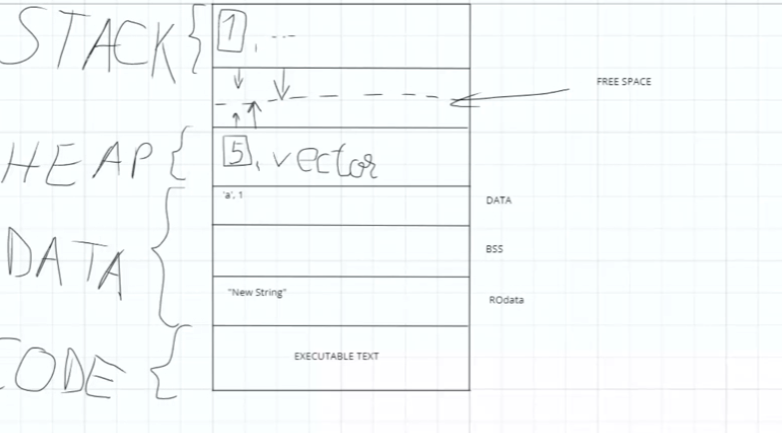 STACK
1, ...
FREE SPACE
HEAP
5, vector
'a', 1
DATA
DATA
BSS
"New String"
ROdata
CODE
EXECUTABLE TEXT